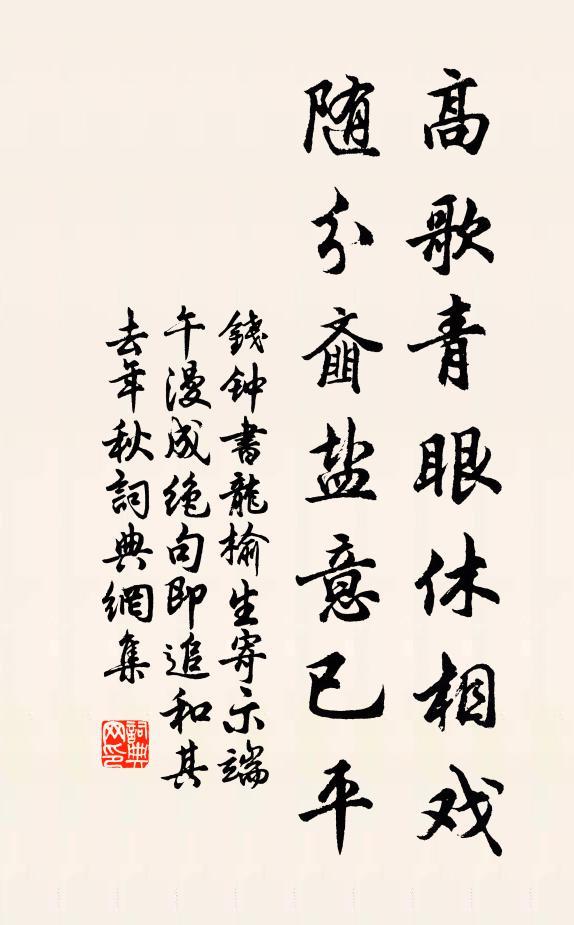 高歌青眼休相戏
随分齑盐意已平
錢钟書龍榆生寄示端
午漫成绝句即追和其
去年秋詞典網集
詞典网印